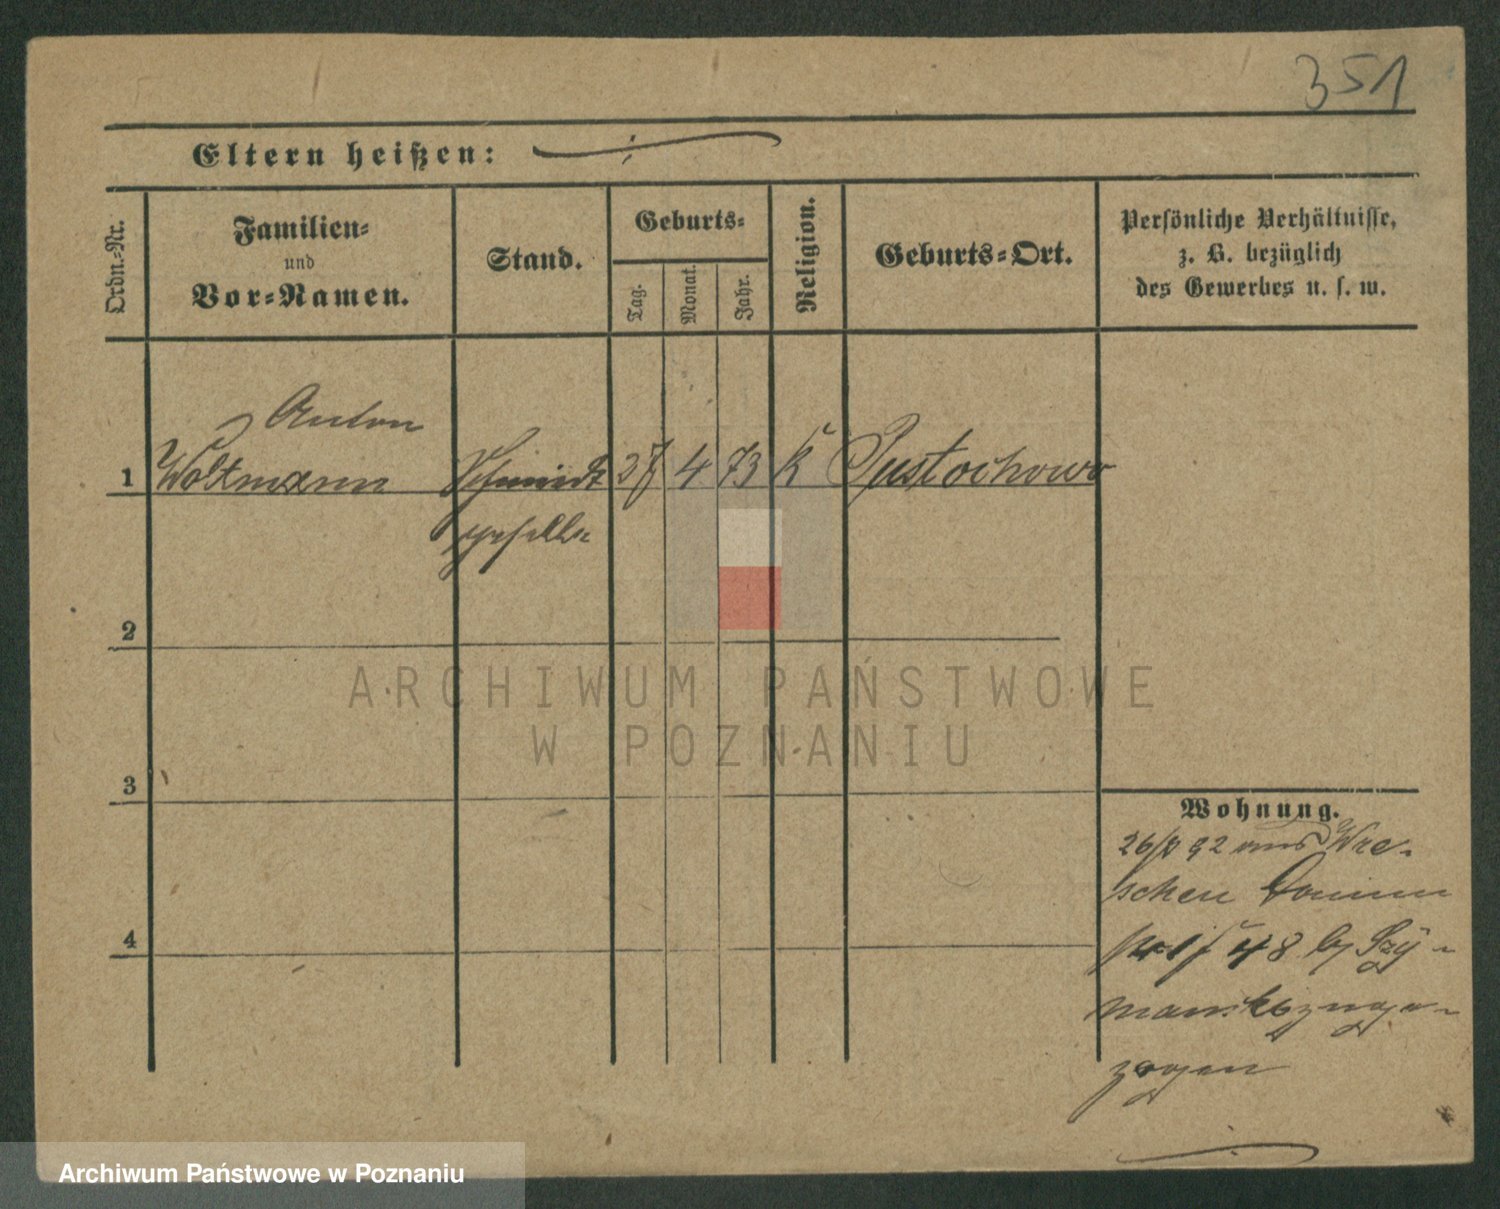 351
Eltern heißen:
Ordn.-Nr.
Familien-
und
Vor-Namen.
Stand.
Geburts-
Tag.
Monat.
Jahr.
Religion.
Geburts-Ort.
Persönliche Verhältnisse,
z. B. bezüglich
des Gewerbes u. s. w.
Anton
1 Woltmann Schmidt 27 4 73 K Pustochowo
geselle
2
ARCHIWUM PAŃSTWOWE
W POZNANIU
3
Wohnung.
92 aus Wre-
schen
48 Szy-
manski zuge-
zogen
4
Archiwum Państwowe w Poznaniu